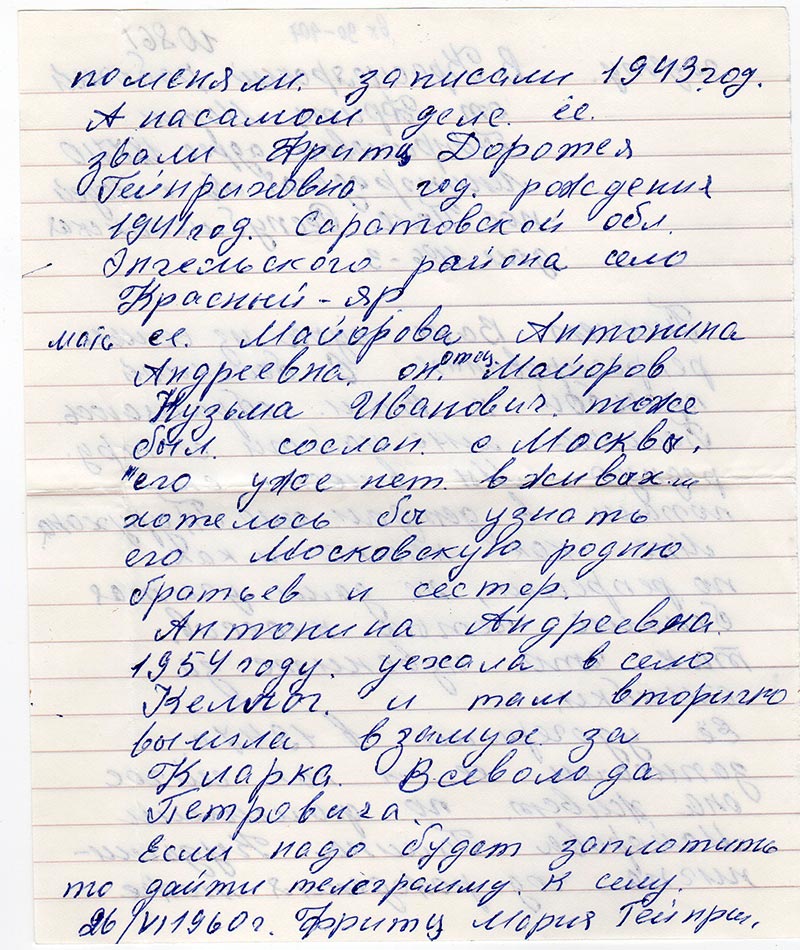 10861
поменяли. записали 1943 год.
А насамом деле. ее.
звали Фритц Доротея
Гейнриховна год. рождения
1941 год. Саратовской обл.
Энгельского района село
Красный-яр
мать ее. Майорова Антонина
Андреевна. он. отец. Майоров
Кузьма Иванович. тоже
был. сослан. с Москвы.
"его уже нет. в живых..."
хотелось бы узнать
его Московскую родню
братьев и сестер.
Антонина Андреевна.
1954 году. уехала в село
Келлог. и там вторично
вышла взамуж за
Кларка. Всеволода
Петровича.
Если надо будет заплотить
то дайти телеграмму. К сему.
26/VI 1960 г. Фритц Мария Гейнрих.